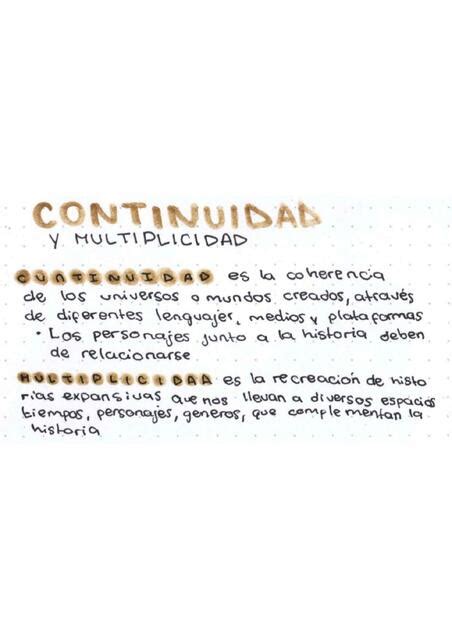 CONTINUIDAD
Y MULTIPLICIDAD
CONTINUIDAD es la coherencia
de los universos o mundos creados, através
de diferentes lenguajes, medios y plataformas
• Los personajes junto a la historia deben
de relacionarse
MULTIPLICIDAD es la recreación de histo
rias expansivas que nos llevan a diversos espacios
tiempos, personajes, generos, que complementan la
historia